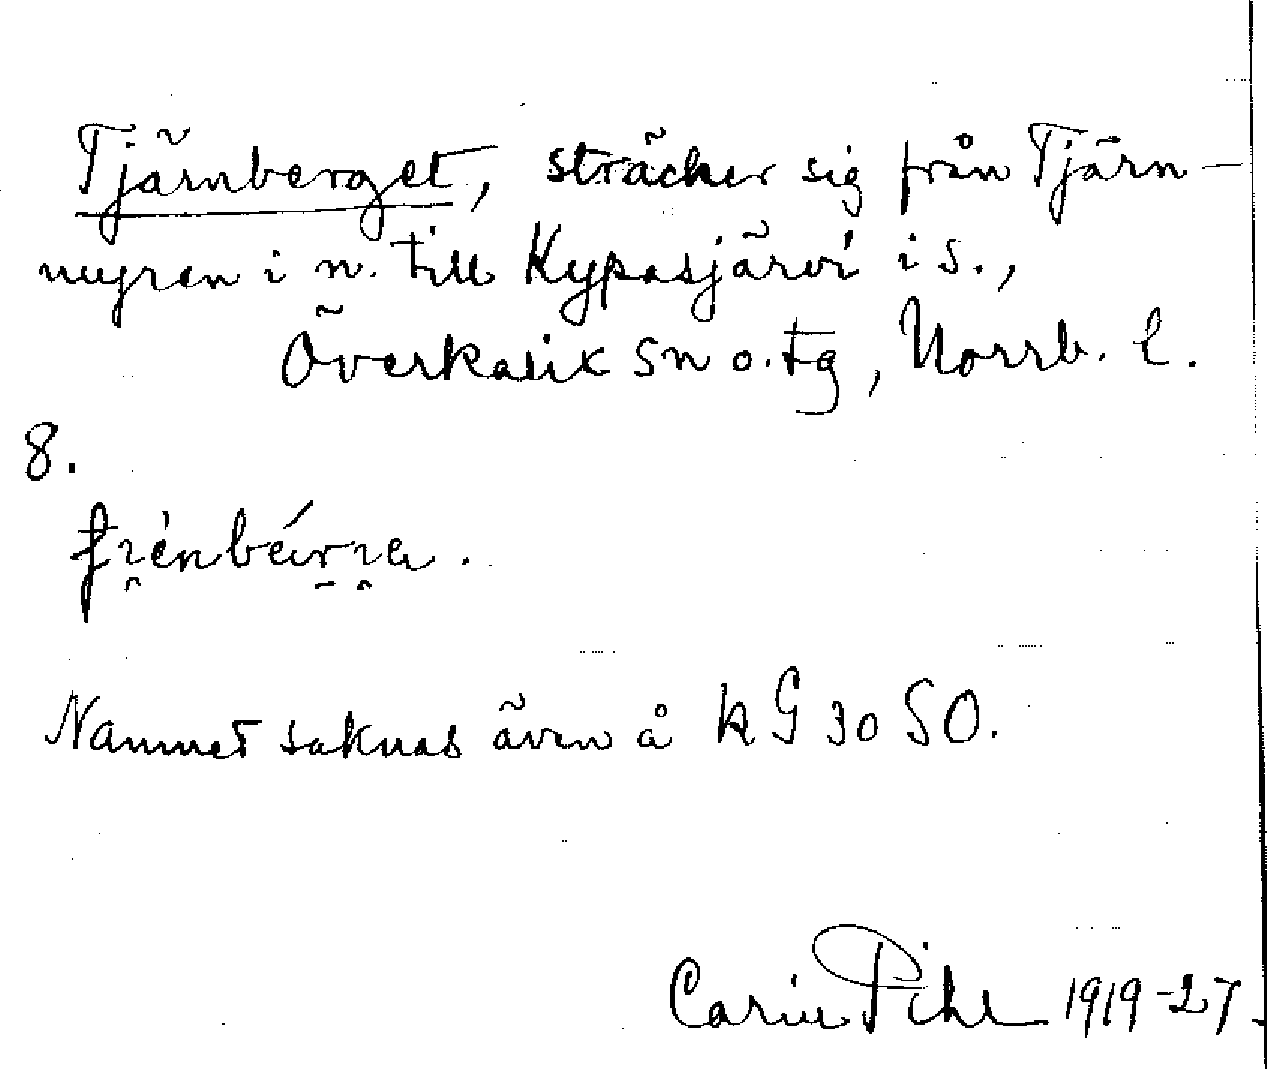 Tjärnberget, sträcker sig från Tjärn-
myren i n. till Kypasjärvi i s.,
Överkalix sn o. tg, Norrb. l.
8.
Namnet saknas även å kG 30 SO.
Carin Pihl 1919-27.